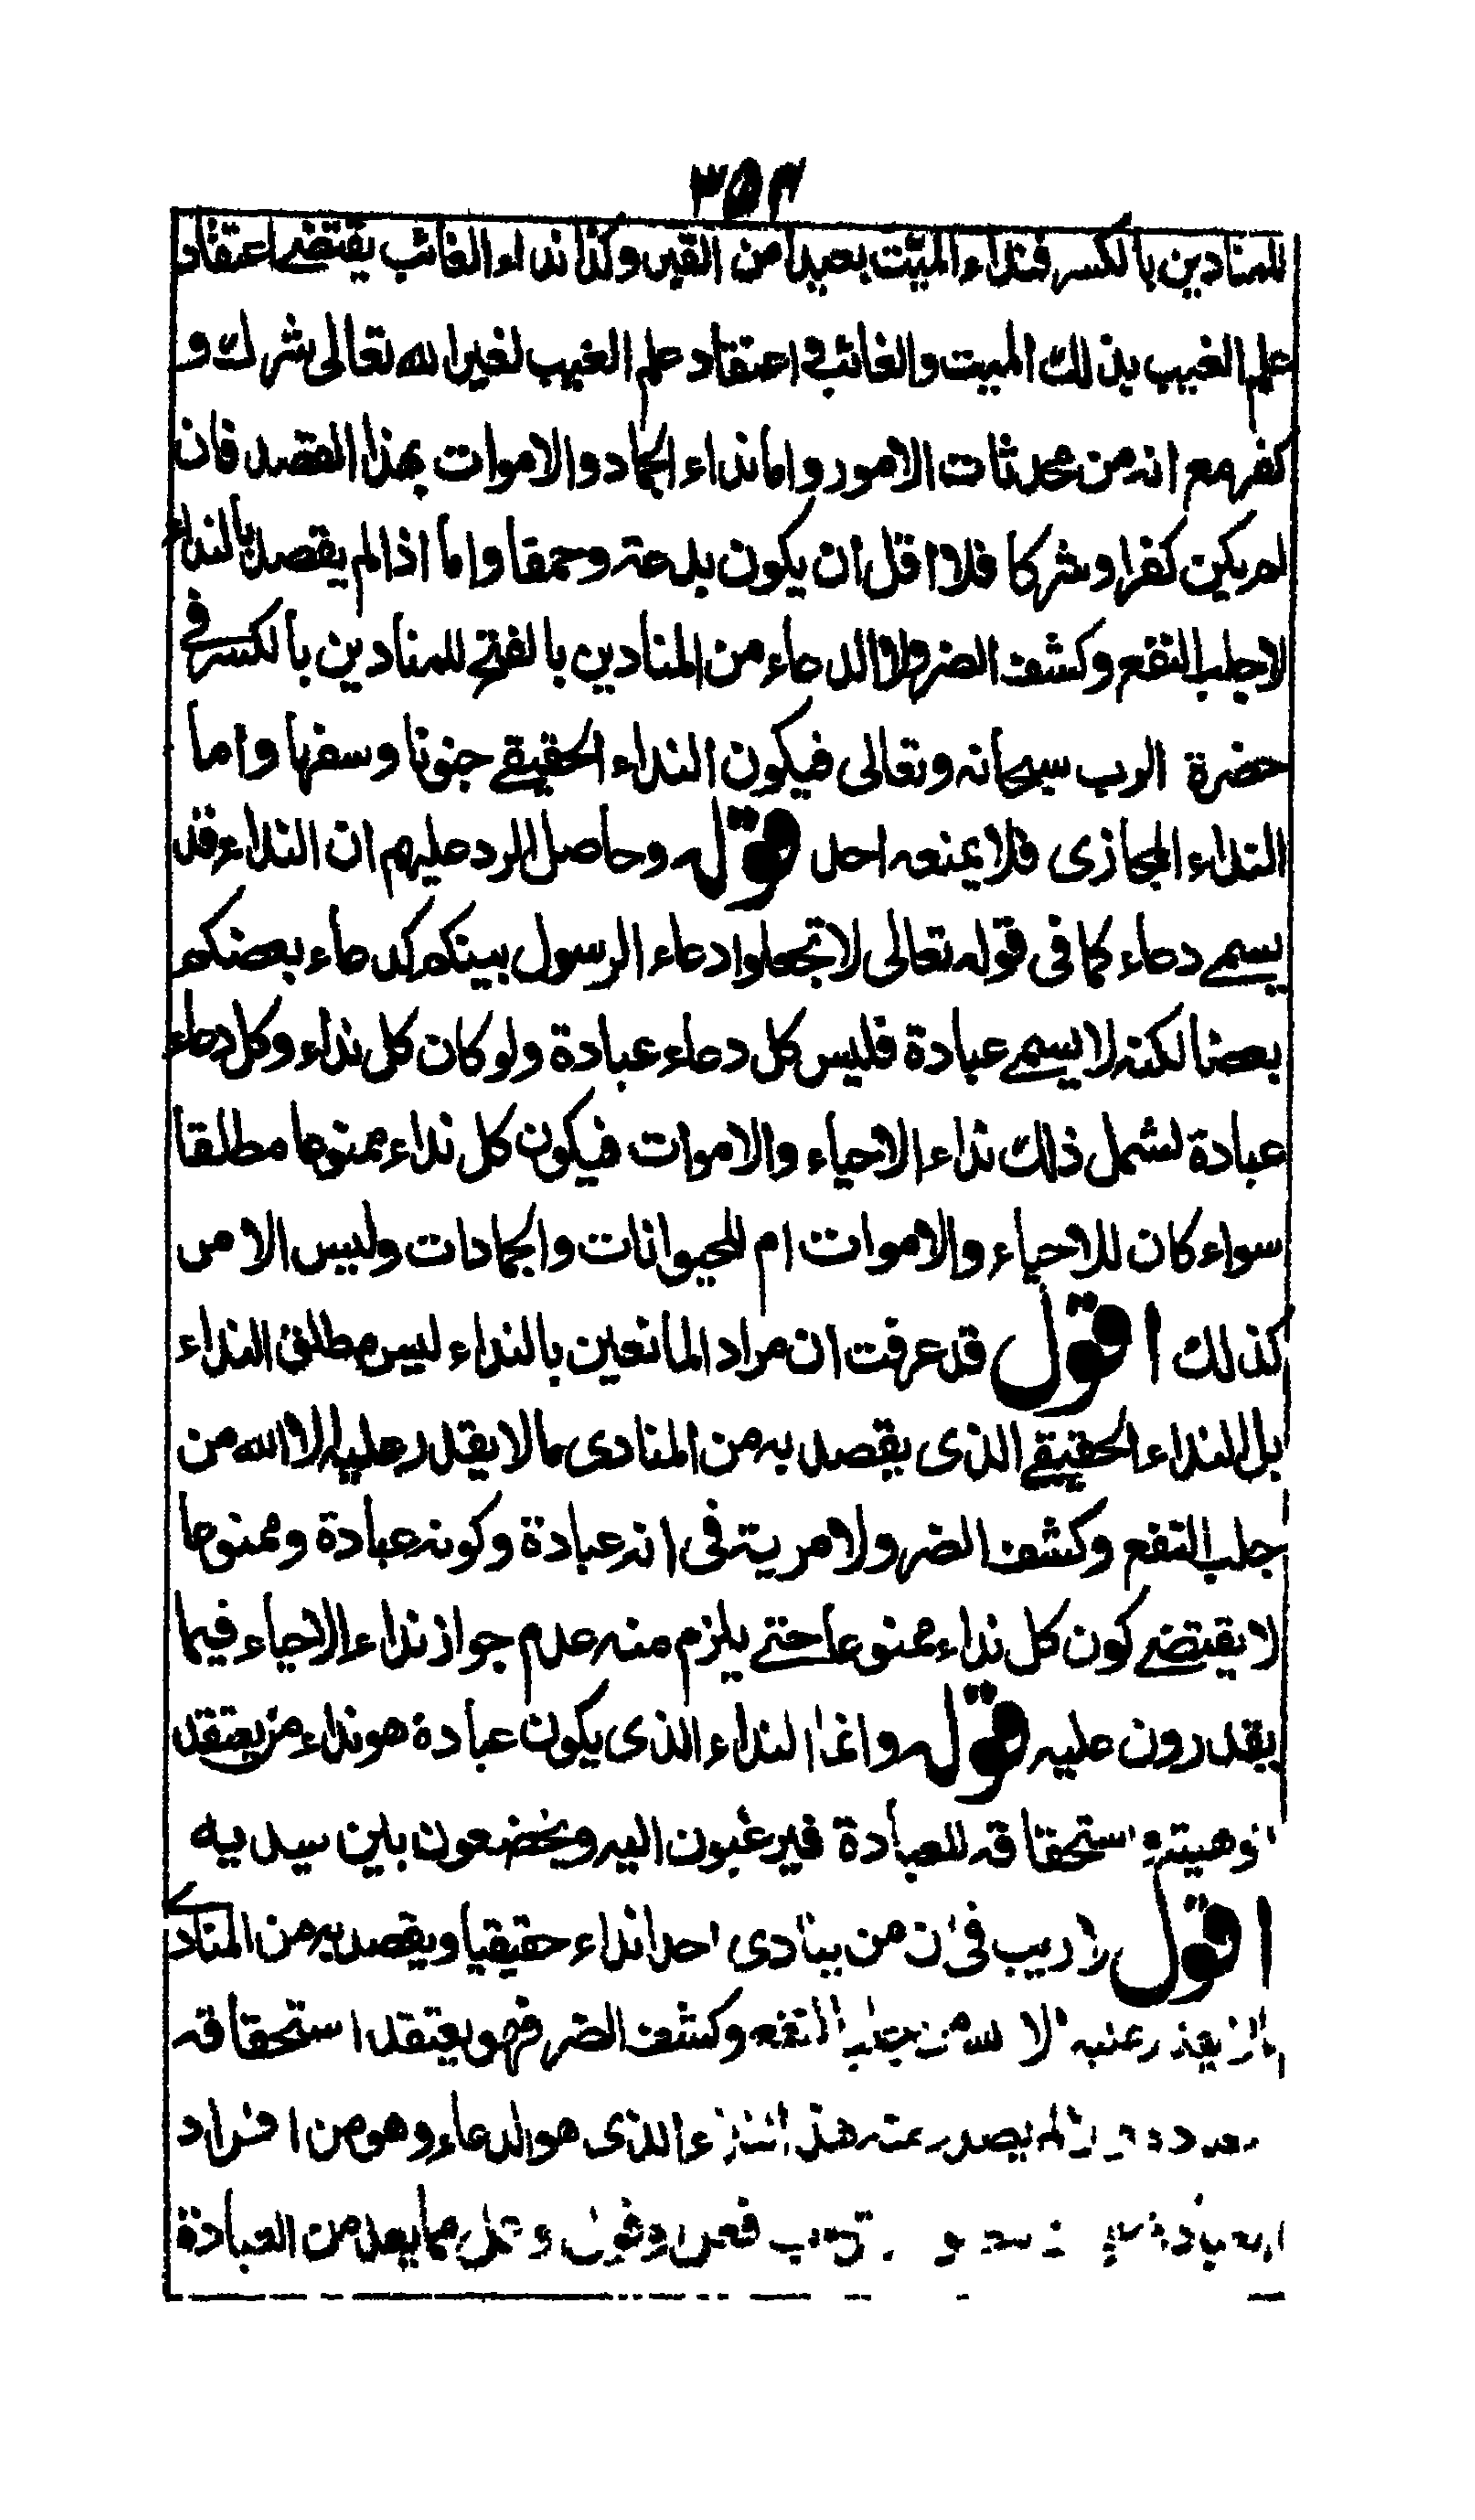 ٣٥٢
للمنادين بالكسر فنداء الميت بعيدا من القبر وكذا نداء الغائب يقتضي اعتقاد
علم الغيب بذلك الميت والغائب في اعتقاد علم الغيب لغير الله تعالى شرك و
كفر مع انه من محدثات الامور واما نداء الجماد والاموات بهذا القصد فان
لم يكن كفرا وشركا فلا اقل ان يكون بدعة وحمقا واما اذا لم يقصد بالنداء
لا جلب النفع وكشف الضر ولا الدعاء من المنادين بالفتح للمنادين بالكسر في
حضرة الرب سبحانه وتعالى فيكون النداء الحقيقي جنونا وسفها واما
النداء المجازى فلا يمنعه احد قوله وحاصل الرد عليهم ان النداء قد
يسمى دعاء كما في قوله تعالى لا تجعلوا دعاء الرسول بينكم كدعاء بعضكم
بعضا لكنه لا يسمى عبادة فليس كل دعاء عبادة ولو كان كل نداء وكل دعاء
عبادة لشمل ذلك نداء الاحياء والاموات فيكون كل نداء ممنوعا مطلقا
سواء كان للاحياء والاموات ام للحيوانات والجمادات وليس الامر
كذلك اقول قد عرفت ان مراد المانعين بالنداء ليس مطلق النداء
بل النداء الحقيقي الذى يقصد به من المنادى ما لا يقدر عليه الا الله من
جلب النفع وكشف الضر ولا مرية في انه عبادة وكونه عبادة وممنوعا
لا يقتضي كون كل نداء ممنوعا حتى يلزم منه عدم جواز نداء الاحياء فيما
يقدرون عليه قوله وانما النداء الذى يكون عبادة هو نداء من يعتقد
الوهيته واستحقاقه للعبادة فيرغبون اليه ويخضعون بين يديه
اقول لا ريب في ان من ينادى احدا نداء حقيقيا ويقصد به من المنادى
ما لا يقدر عليه الا الله من جلب النفع وكشف الضر فهو يعتقد استحقاقه
يصدر عنه هذا النداء الذى هو الدعاء وهو من افراد
العبادة مما يعد من العبادة